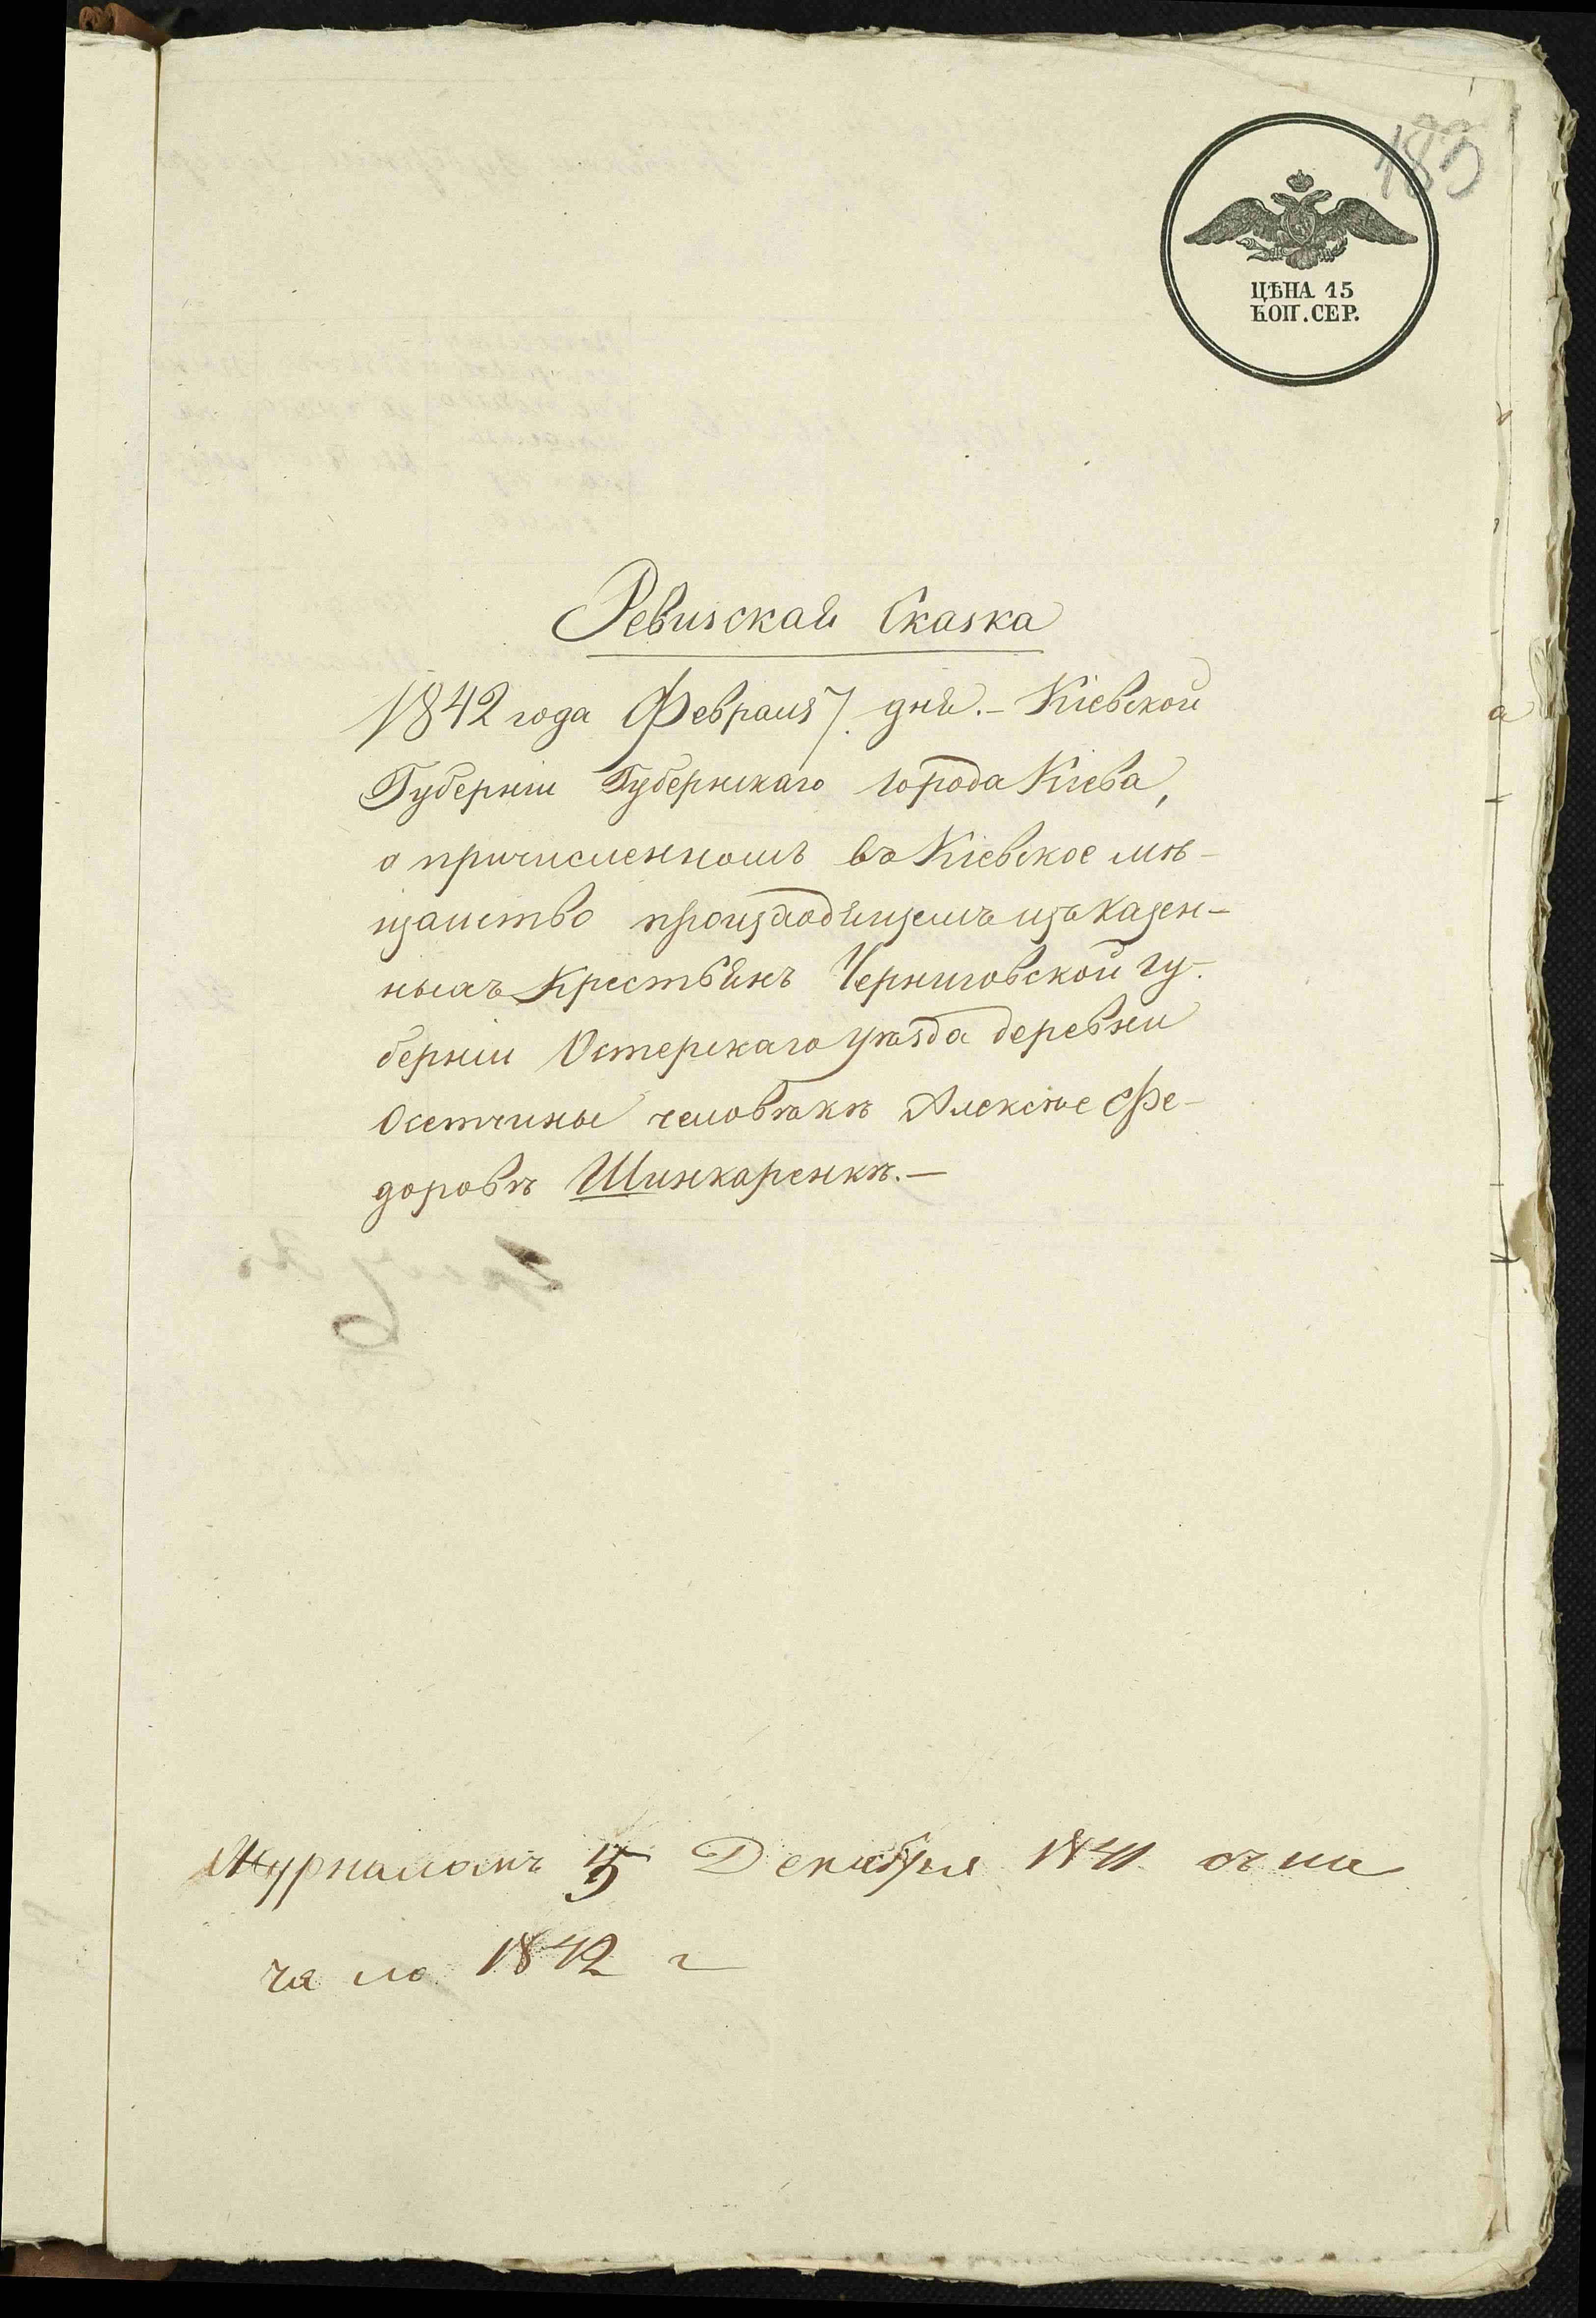 183
ЦѢНА 15
КОП. СЕР.
Ревизская Сказка
1842 года Февраля 7. дня.- Кіевской
Губерніи Губернскаго города Кіева,
о причисленномъ въ Кіевское мѣ-
щанство произходящемъ изъ казен-
ныхъ Крестьянъ Черниговской гу-
берніи Остерскаго уѣзда деревни
Осетчины человѣкѣ Алексѣе Фе-
доровѣ Шинкаренкѣ.-
Журналомъ 5 Декабря 1841 съ на
чало 1842 г